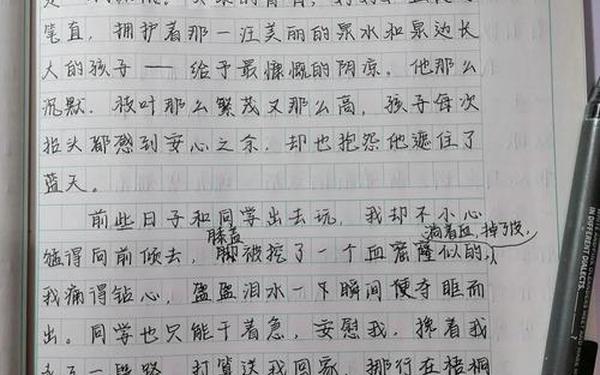 笔直，拥护着那一注美丽的泉水和泉边长
大的孩子——给予最慷慨的阴凉。他那么
沉默，枝叶那么繁茂又那么高，孩子每次
抬头都感到安心之余，却也抱怨他遮住了
蓝天。
前些日子和同学出去玩，我却不小心
猛得向前倾去，膝盖被挖了一个血窟窿似的，滴着血，掉了皮，
我痛得钻心，盈盈泪水一下瞬间便夺眶而
出。同学也只能干着急，安慰我，搀着我
走了一段路，打算送我回家，挪行在梧桐
IN DIFFERENT DIALECTS.